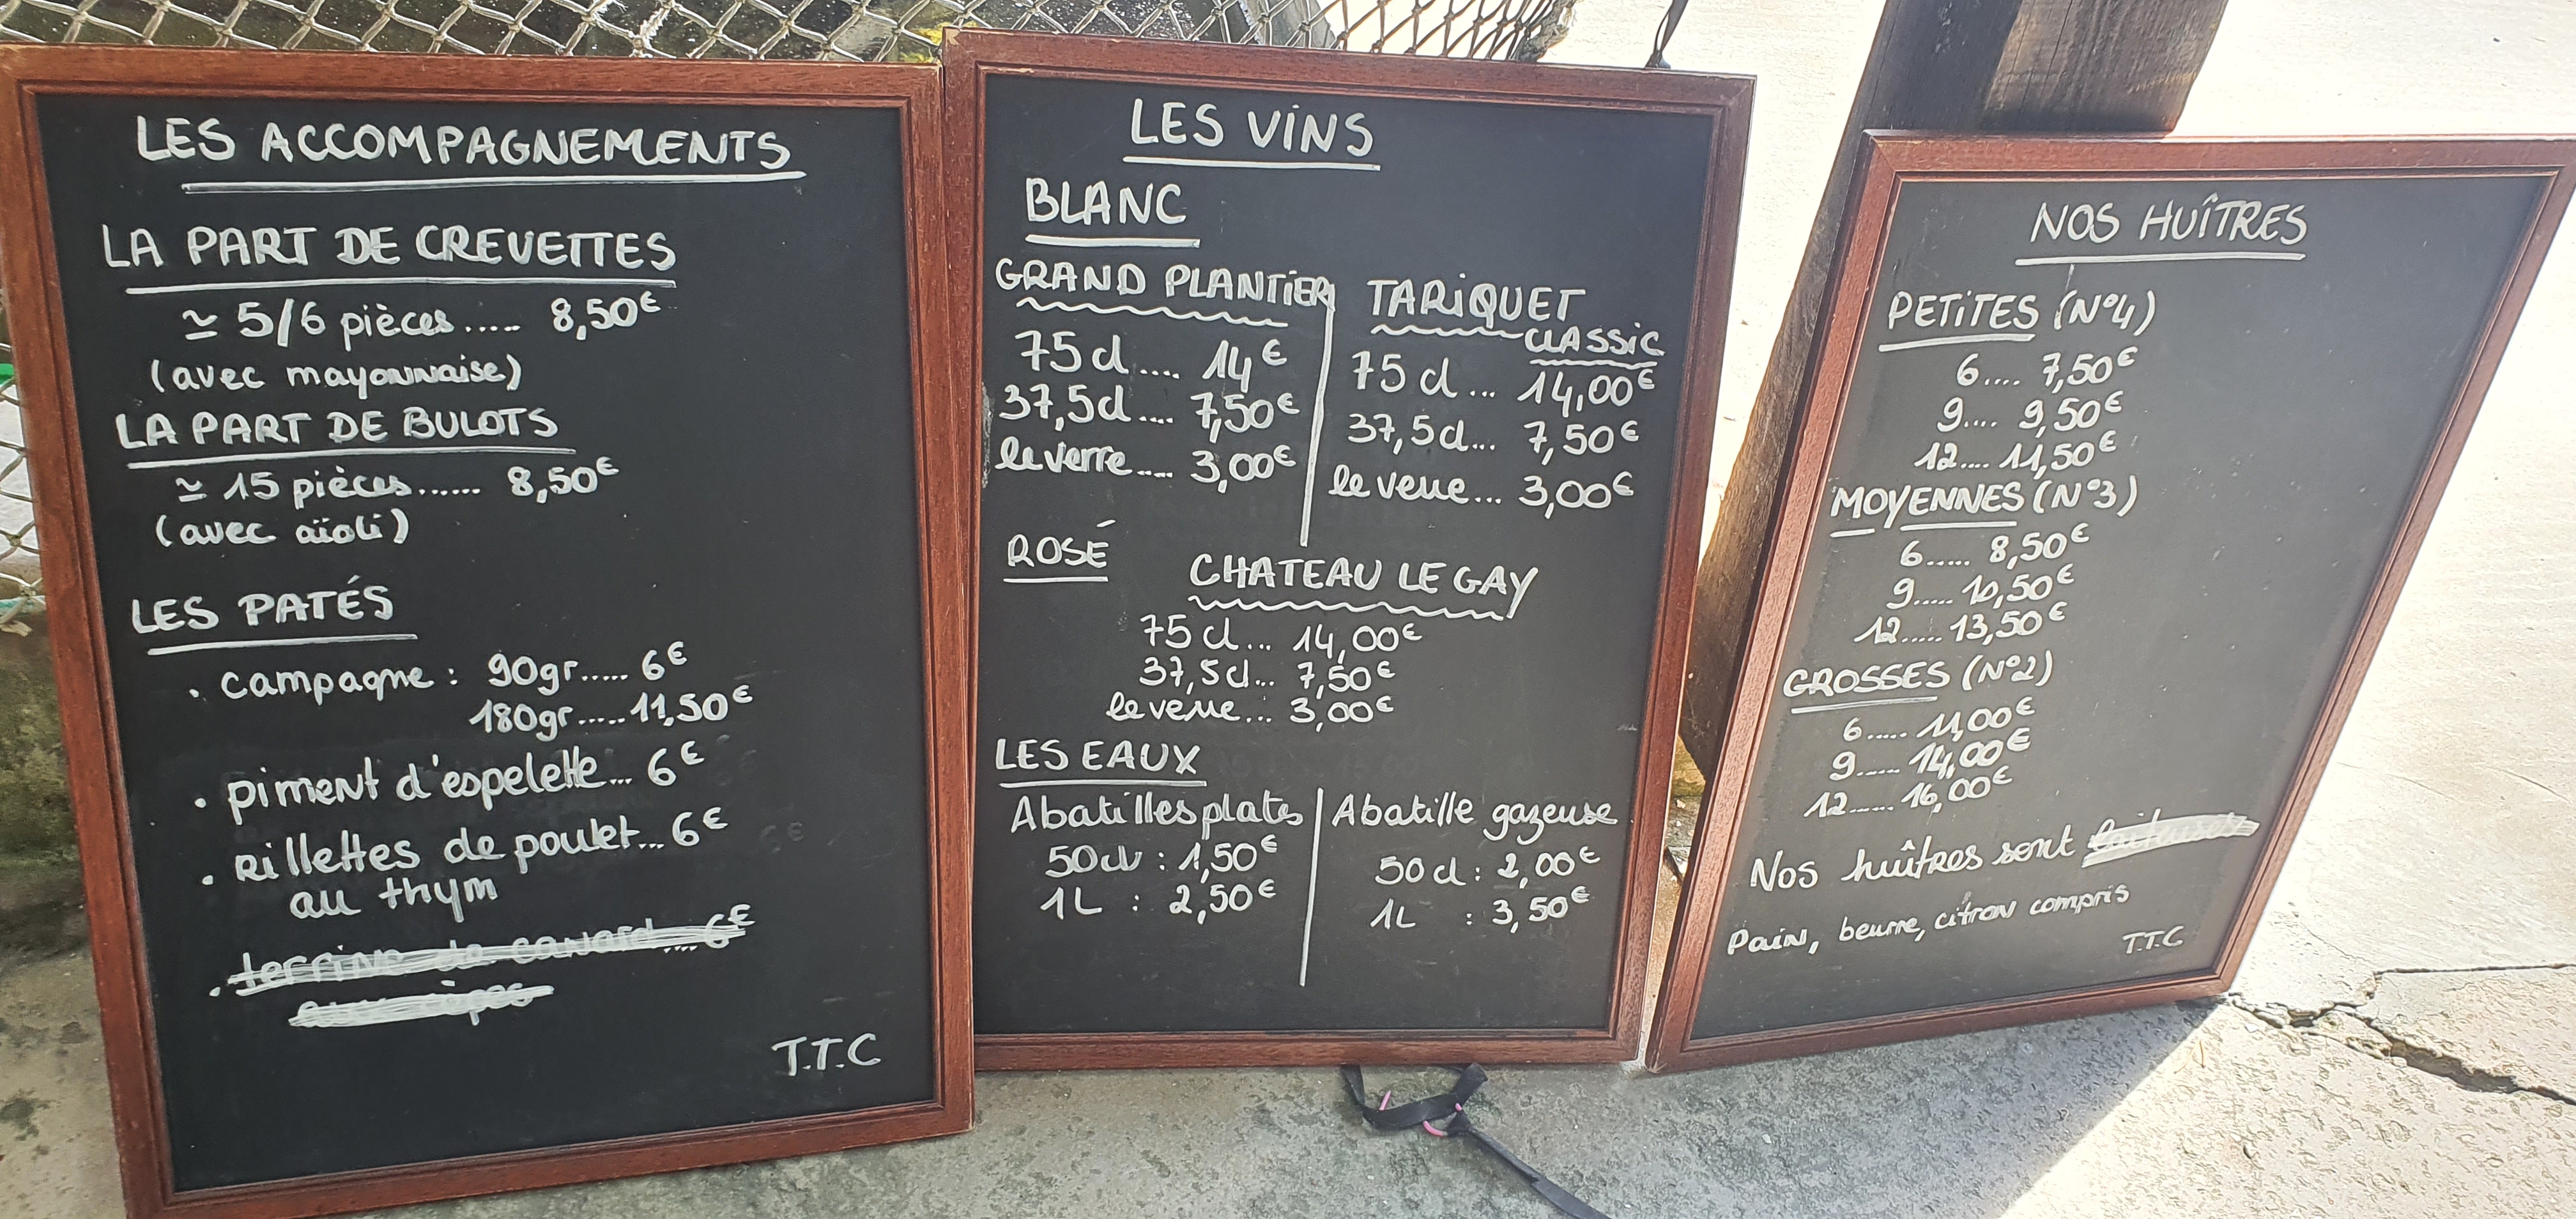 LES ACCOMPAGNEMENTS
LA PART DE CREVETTES
≃ 5/6 pièces..... 8,50€
(avec mayonnaise)
LA PART DE BULOTS
≃ 15 pièces...... 8,50€
(avec aïoli)
LES PATÉS
. campagne : 90gr..... 6€
180gr.....11,50€
. piment d'espelette... 6€
. Rillettes de poulet... 6€
au thym
. terrine de canard.... 6€
T.T.C
LES VINS
BLANC
GRAND PLANTIER
75 cl.... 14€
37,5cl.... 7,50€
le verre.... 3,00€
TARIQUET
CLASSIC
75 cl... 14,00€
37,5 cl... 7,50€
le verre... 3,00€
ROSÉ
CHATEAU LE GAY
75 cl... 14,00€
37,5cl... 7,50€
le verre... 3,00€
LES EAUX
Abatilles plates
50cl : 1,50€
1L : 2,50€
Abatille gazeuse
50 cl : 2,00€
1L : 3,50€
NOS HUÎTRES
PETITES (N°4)
6.... 7,50€
9.... 9,50€
12.... 11,50€
MOYENNES (N°3)
6..... 8,50€
9..... 10,50€
12..... 13,50€
GROSSES (N°2)
6..... 11,00€
9..... 14,00€
12..... 16,00€
Nos huîtres sont
Pain, beurre, citron compris
T.T.C